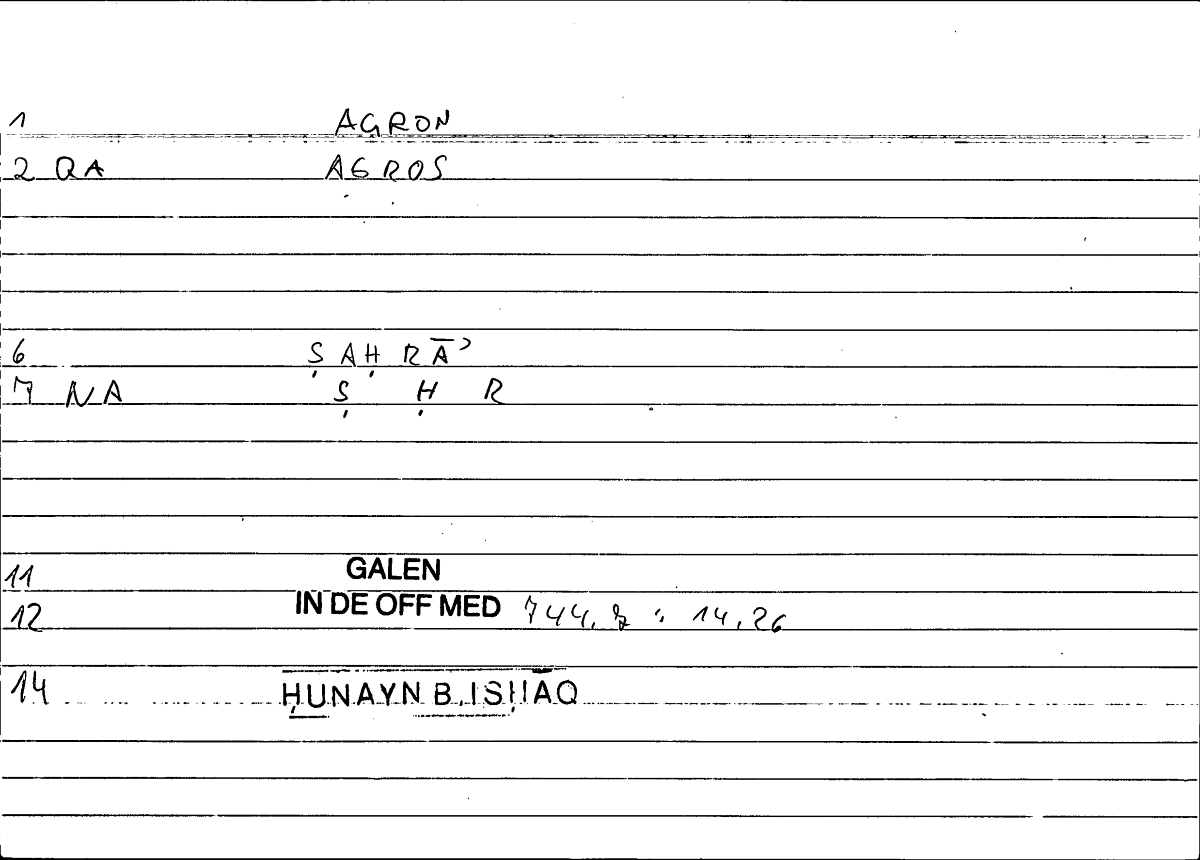 1 AGRON
2 QA AGROS
6 ṢAḤRĀʾ
7 NA Ṣ Ḥ R
11 GALEN
12 IN DE OFF MED 744, : 14,26
14 ḤUNAYN B. ISḤĀQ